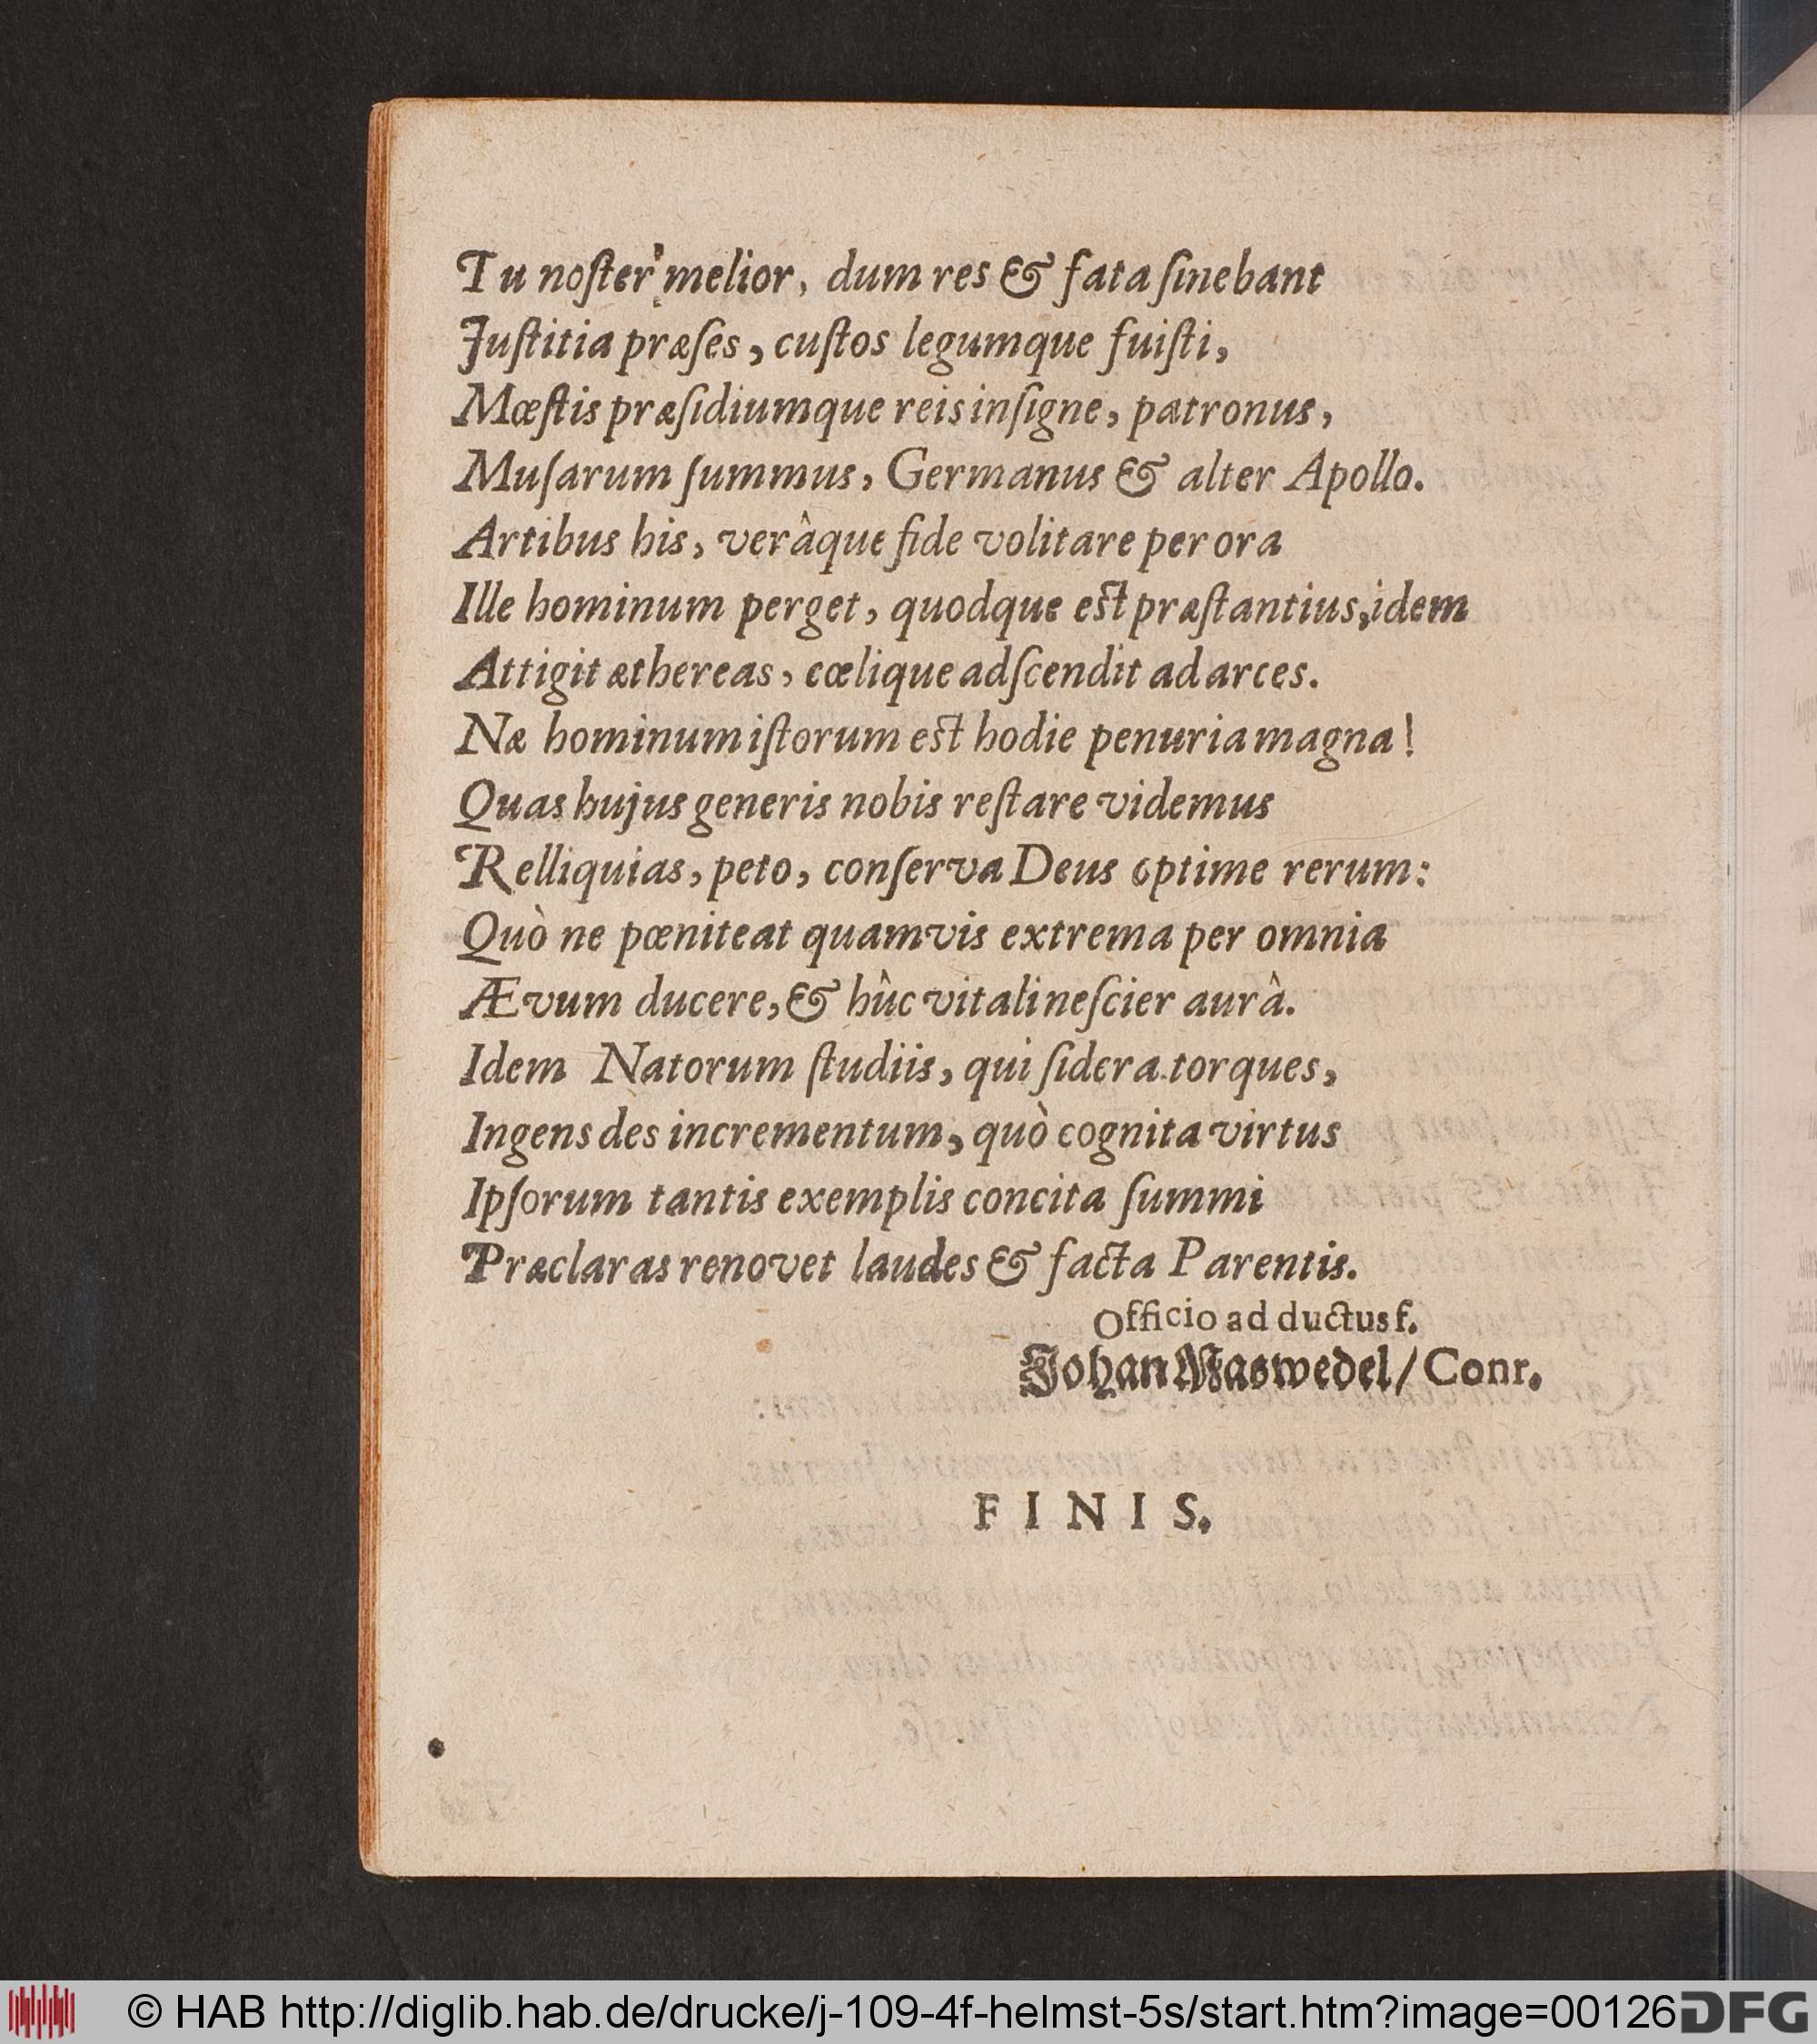 Tu noſter melior, dum res & fata ſinebant
Juſtitia præſes, cuſtos legumque fuiſti,
Mœſtis præſidiumque reis inſigne, patronus,
Muſarum ſummus, Germanus & alter Apollo.
Artibus his, verâque fide volitare per ora
Ille hominum perget, quodque est præſtantius, idem
Attigit æthereas, cœlique adſcendit ad arces.
Næ hominum iſtorum est hodie penuria magna!
Quas hujus generis nobis reſtare videmus
Relliquias, peto, conſerva Deus optime rerum:
Quò ne pœniteat quamvis extrema per omnia
Ævum ducere, & hûc vitali neſcier aurâ.
Idem Natorum ſtudiis, qui ſidera torques,
Ingens des incrementum, quò cognita virtus
Ipſorum tantis exemplis concita ſummi
Præclaras renovet laudes & facta Parentis.
Officio ad ductus f.
Johan Maswedel/ Conr.
FINIS.
© HAB http://diglib.hab.de/drucke/j-109-4f-helmst-5s/start.htm?image=00126
DFG